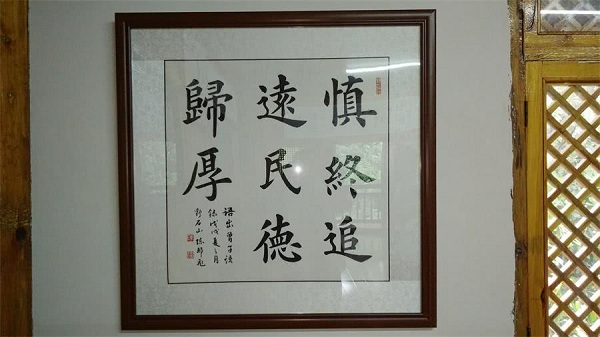 慎終追
遠民德
歸厚
語出曾子讀
後戊戌夏之月